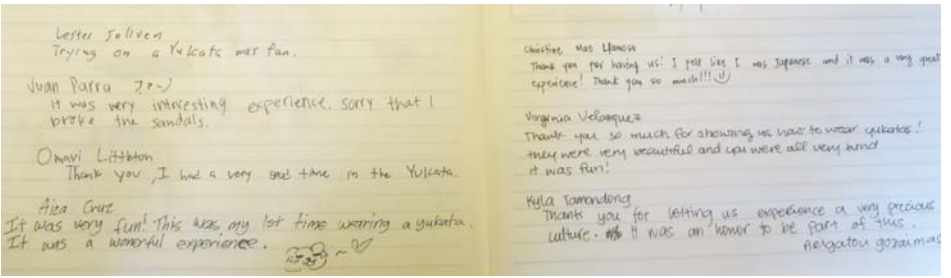 Lester Joliven
Trying on a Yukata was fun.
Juan Parra
it was very interesting experience. sorry that I
broke the sandals.
Omavi Littleton
Thank you, I had a very good time in the Yukata.
Aiza Cruz
It was very fun! This was my 1st time wearing a yukata.
It was a wonerful experience.
Christine Mae
Thank you for having us! I felt like I was Japanese and it was a very great
experience! Thank you so much!!!
Virginia Velasquez
Thank you so much for showing us how to wear yukatas!
they were very beautiful and you were all very kind
it was fun!
Kyla Tamondong
Thank you for letting us experience a very precious
culture. It was an honor to be part of this.
Arigatou gozaimas